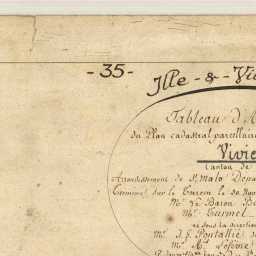 - 35 - Ille - & - Vi
Tableau d'A
du Plan cadastral parcellaire
Vivie
Canton de
Arrondissement de St. Malo Dépa
Terminé sur le Terrein le 20 Nov
Mr. le Baron
Mr. Turmel
et sous la direction
Mr. J. F. Pontallié
Mr. At. Lefèvre